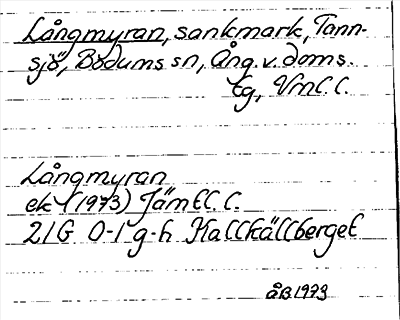 Långmyran, sankmark, Tann-
sjö, Bodums sn, Ång. v. doms.
tg, Vrnl. l.
Långmyran
ek (1973) Jämtl. l.
21G 0-1 g-h Kallkällberget
ÅB 1973